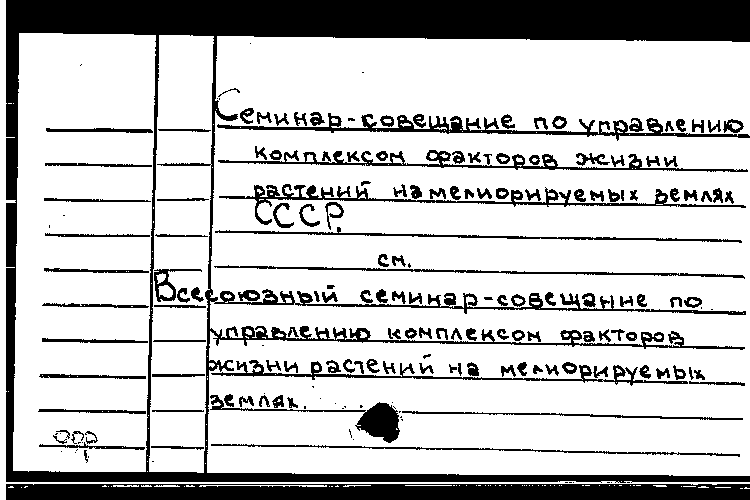 Семинар-совещание по управлению
комплексом факторов жизни
растений на мелиорируемых землях
СССР.
см.
Всесоюзный семинар-совещание по
управлению комплексом факторов
жизни растений на мелиорируемых
землях.